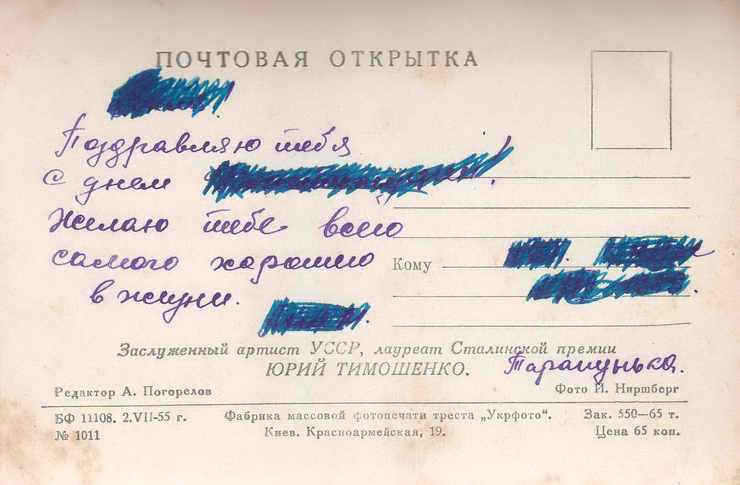 ПОЧТОВАЯ ОТКРЫТКА
Поздравляю тебя
с днем !
Желаю тебе всего
самого хорошего
в жизни.
Кому
Заслуженный артист УССР, лауреат Сталинской премии
ЮРИЙ ТИМОШЕНКО. Тарапунька.
Редактор А. Погорелов
Фото И. Ниршберг
БФ 11108. 2.VII-55 г.
Фабрика массовой фотопечати треста „Укрфото“.
Зак. 550—65 т.
№ 1011
Киев. Красноармейская, 19.
Цена 65 коп.